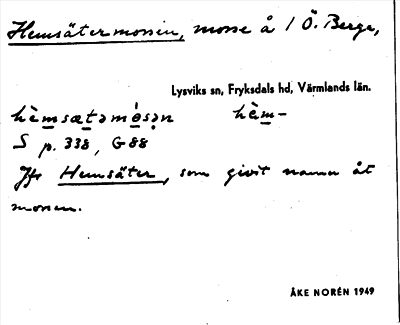 Hemsätermossen, mosse å 1 Ö. Berge,
Lysviks sn, Fryksdals hd, Värmlands län.
hèmsætəmósən hèm-
S p. 338, G88
Jfr Hemsäter, som givit namn åt
mossen.
ÅKE NORÉN 1949